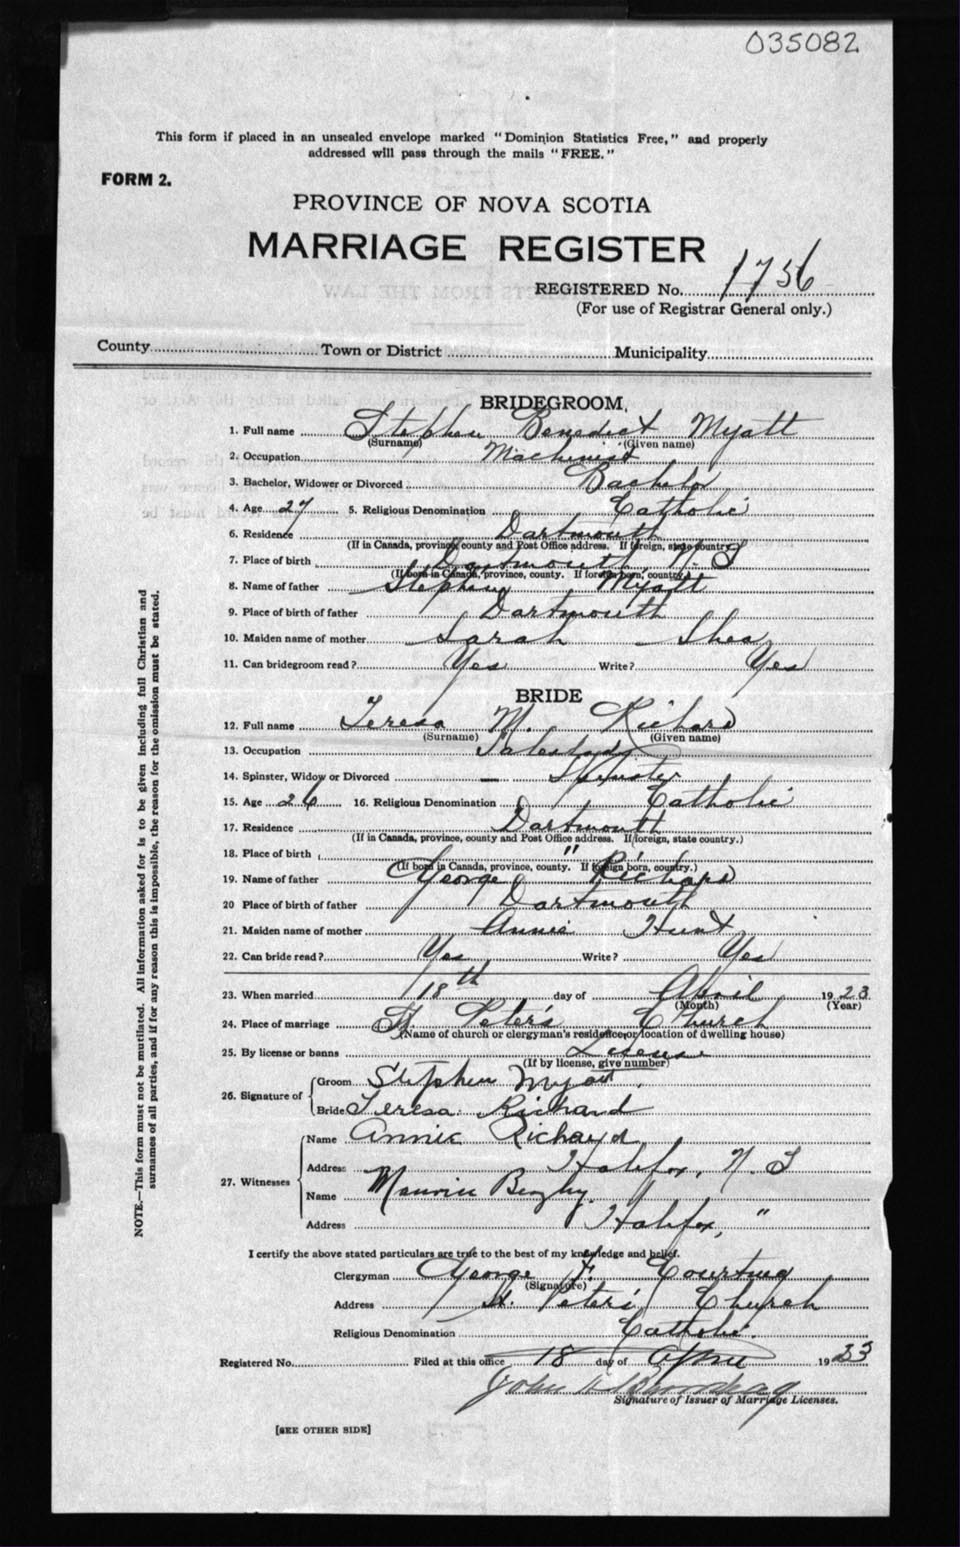 035082
This form if placed in an unsealed envelope marked "Dominion Statistics Free," and properly
addressed will pass through the mails "FREE."
FORM 2.
PROVINCE OF NOVA SCOTIA
MARRIAGE REGISTER
REGISTERED No. 1756
(For use of Registrar General only.)
County Town or District Municipality
BRIDEGROOM.
1. Full name Stephen Benedict Myatt
(Surname) (Given name)
2. Occupation Machinist
3. Bachelor, Widower or Divorced Bachelor
4. Age 27 5. Religious Denomination Catholic
6. Residence Dartmouth
(If in Canada, province, county and Post Office address. If foreign, state country.)
7. Place of birth Dartmouth N. S
(If born in Canada, province, county. If foreign born, country.)
8. Name of father Stephen Myatt
9. Place of birth of father Dartmouth
10. Maiden name of mother Sarah Shea
11. Can bridegroom read? Yes Write? Yes
BRIDE
12. Full name Teresa M. Richard
(Surname) (Given name)
13. Occupation Saleslady
14. Spinster, Widow or Divorced — Spinster
15. Age 26 16. Religious Denomination Catholic
17. Residence Dartmouth
(If in Canada, province, county and Post Office address. If foreign, state country.)
18. Place of birth "
(If born in Canada, province, county. If foreign born, country.)
19. Name of father George Richard
20 Place of birth of father Dartmouth
21. Maiden name of mother Annie Hunt
22. Can bride read? Yes Write? Yes
23. When married 18th day of April 1923
(Month) (Year)
24. Place of marriage St. Peter's Church
(Name of church or clergyman's residence, or location of dwelling house)
25. By license or banns License
(If by license, give number)
26. Signature of Groom Stephen Myatt.
Bride Teresa Richard
27. Witnesses Name Annie Richard
Address Halifax, N. S
Name Maurice
Address Halifax, "
I certify the above stated particulars are true to the best of my knowledge and belief.
Clergyman George F. Courtney
(Signature)
Address St. Peter's Church
Religious Denomination Catholic.
Registered No. Filed at this office 18 day of April 1923
John
Signature of Issuer of Marriage Licenses.
[SEE OTHER SIDE]
NOTE.—This form must not be mutilated. All information asked for is to be given including full Christian and
surnames of all parties, and if for any reason this is impossible, the reason for the omission must be stated.